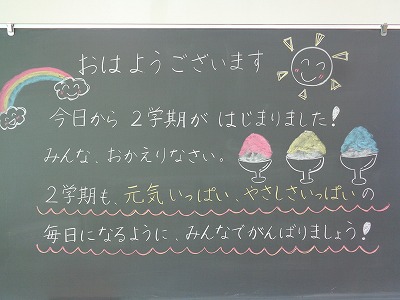 おはようございます
今日から 2学期が はじまりました!
みんな、おかえりなさい。
2学期も、元気いっぱい、やさしさいっぱいの
毎日になるように、みんなでがんばりましょう!